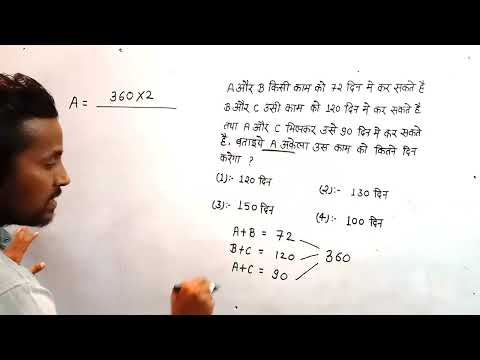 A = 360×2
A और B किसी काम को 72 दिन में कर सकते हैं
B और C उसी काम को 120 दिन में कर सकते हैं
तथा A और C मिलकर उसे 90 दिन में कर सकते
हैं, बताइये A अकेला उस काम को कितने दिन
करेगा ?
(1):- 120 दिन (2):- 130 दिन
(3):- 150 दिन (4):- 100 दिन
A+B = 72
B+C = 120 360
A+C = 90